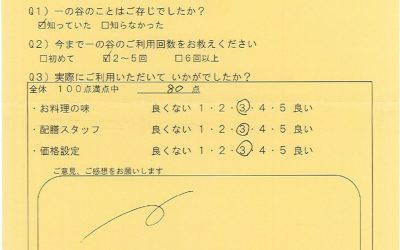 Q1）一の谷のことはご存じでしたか？
☑知っていた　□知らなかった
Q2）今まで一の谷のご利用回数をお教えください
□初めて　☑2～5回　□6回以上
Q3）実際にご利用いただいて いかがでしたか？
全体　100点満点中　80 点
・お料理の味　良くない 1・2・3・4・5 良い
・配膳スタッフ　良くない 1・2・3・4・5 良い
・価格設定　良くない 1・2・3・4・5 良い
ご意見、ご感想をお願いします